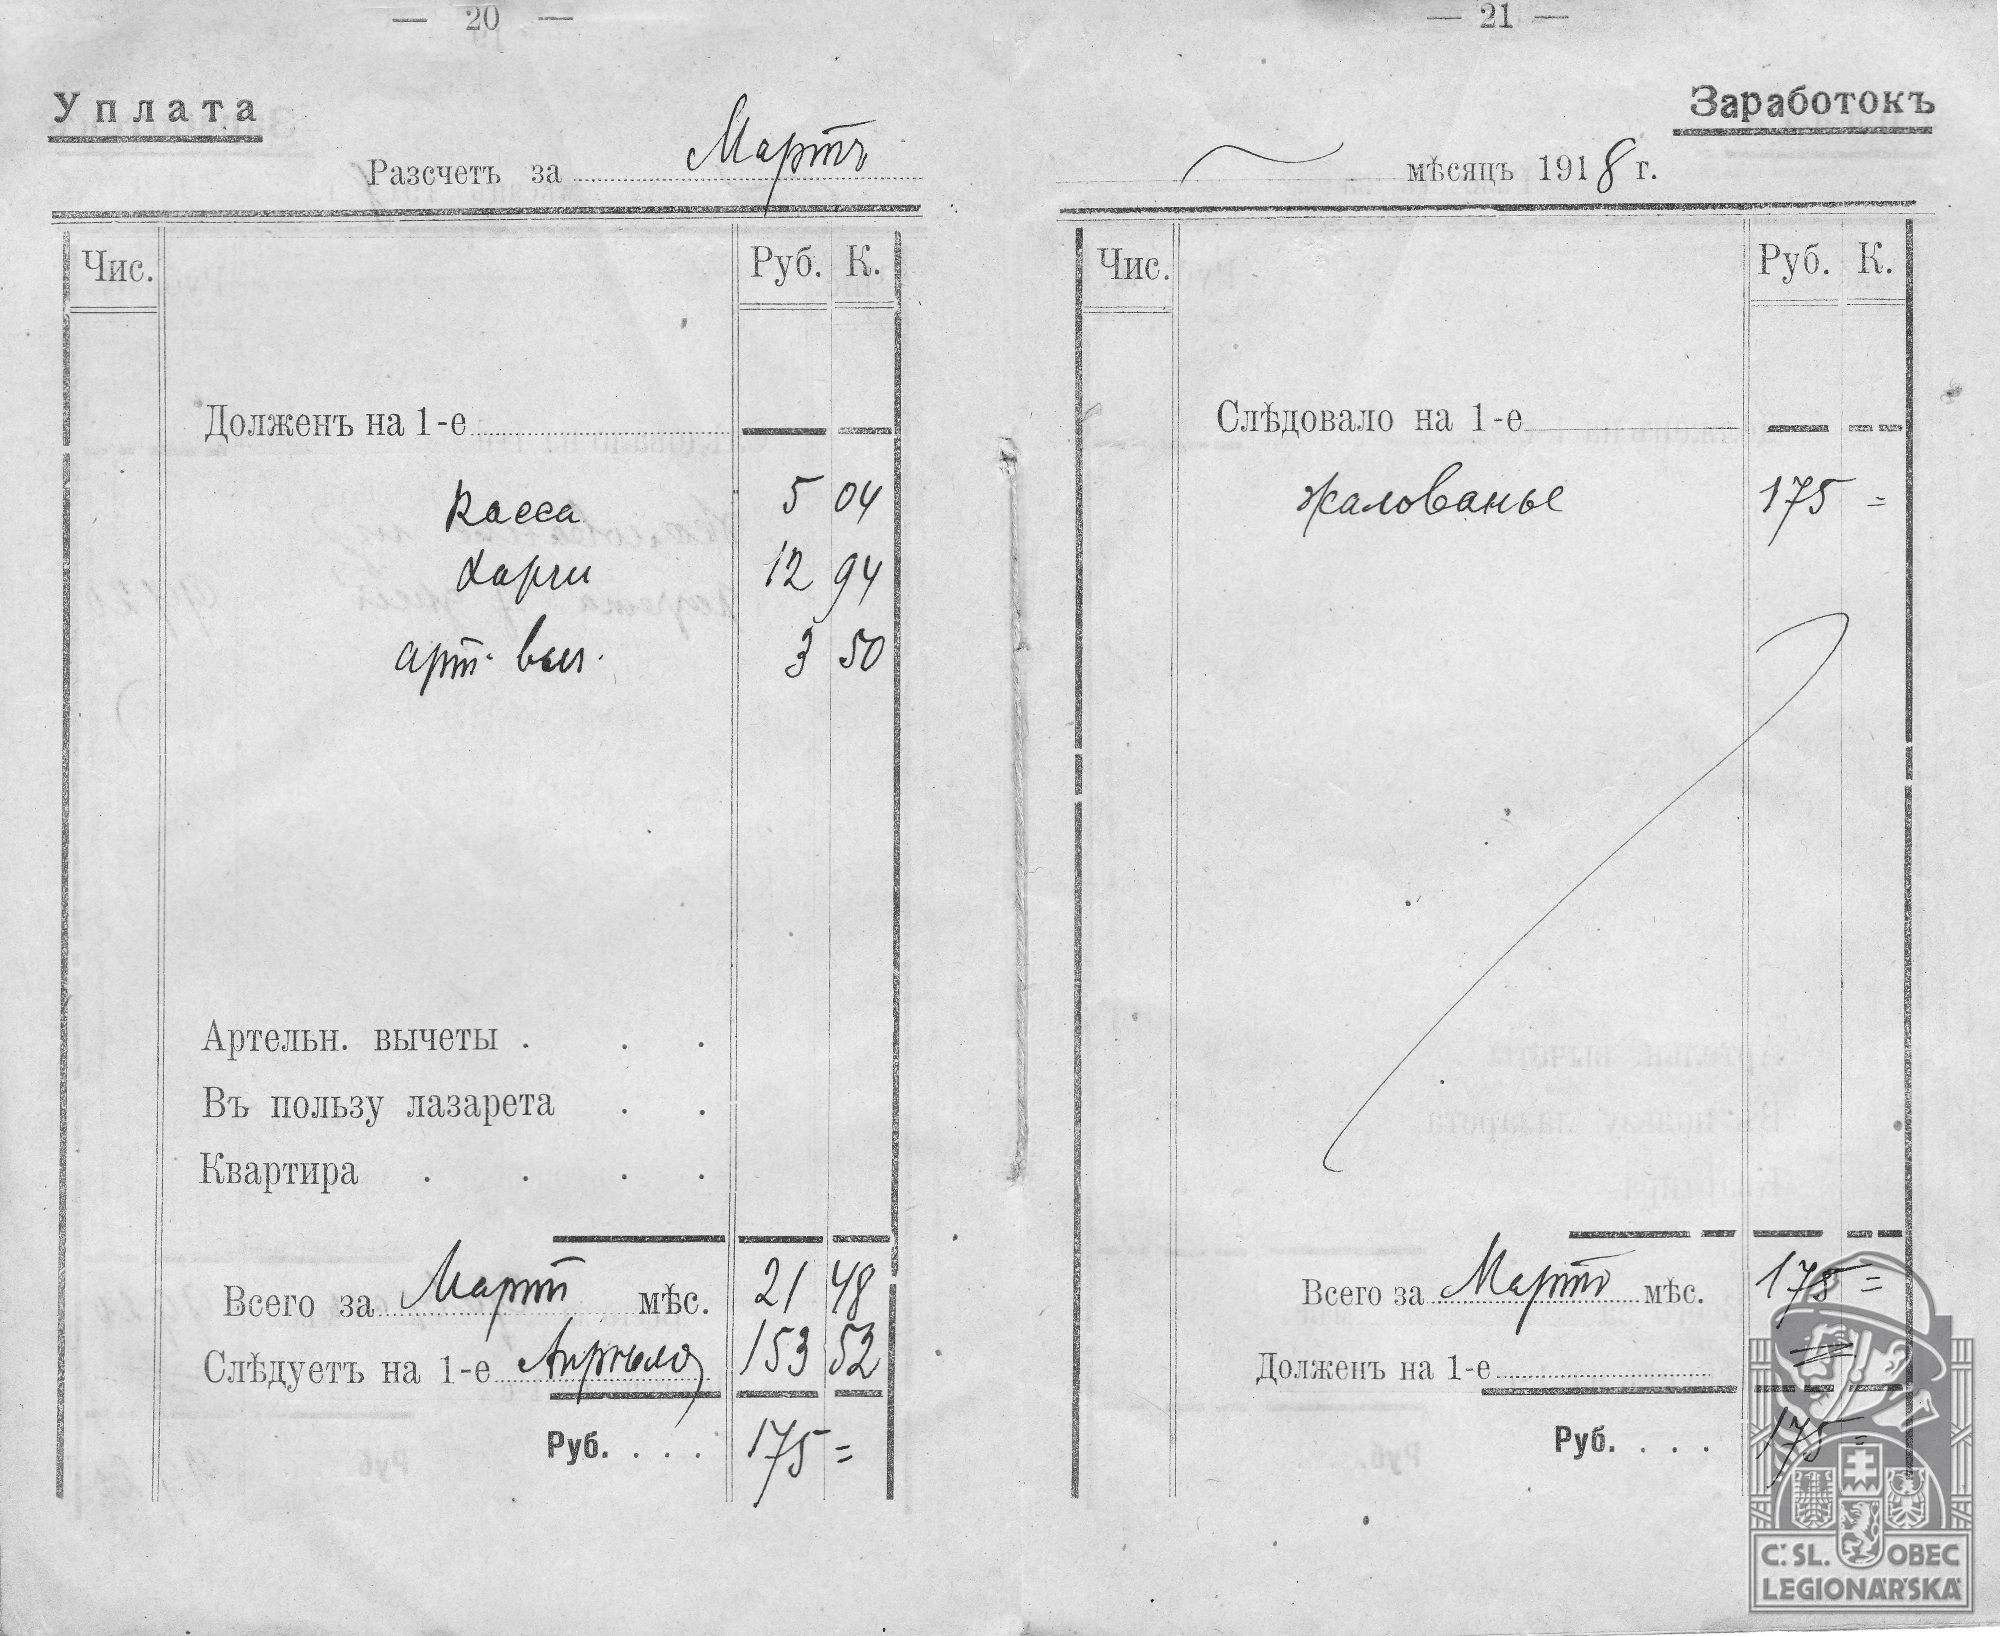 — 20 —
Уплата
Разсчетъ за Мартъ
Чис. Руб. К.
Долженъ на 1-е
Касса 5 04
Харчи 12 94
арт. выч. 3 50
Артельн. вычеты . . .
Въ пользу лазарета . .
Квартира . . . .
Всего за Мартъ мѣс. 21 48
Слѣдуетъ на 1-е Апрѣля 153 52
Руб. . . . 175 =
— 21 —
Заработокъ
мѣсяцъ 1918 г.
Чис. Руб. К.
Слѣдовало на 1-е
жалованье 175 =
Всего за Мартъ мѣс. 175 =
Долженъ на 1-е
Руб. . . . 175 =
Č.SL. OBEC
LEGIONÁŘSKÁ